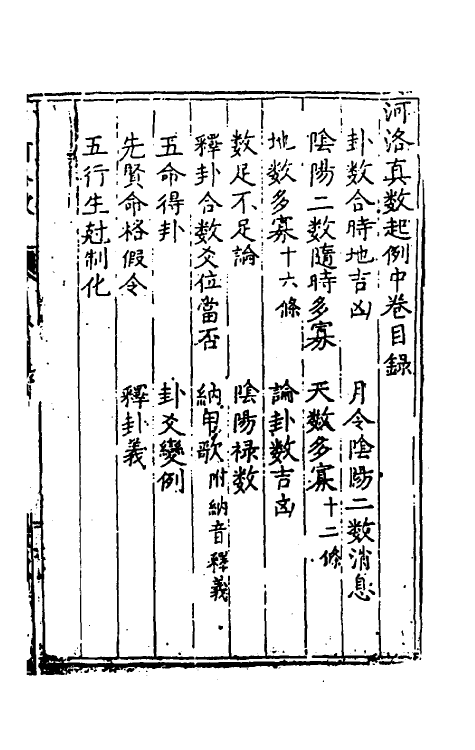 河洛真数起例中卷目録
卦数合時地吉凶　月令陰陽二数消息
陰陽二数隨時多寡　天数多寡十二條
地数多寡十六條　論卦数吉凶
数足不足論　陰陽禄数
釋卦合数爻位當否　納甲歌附納音釋義
五命得卦　卦爻變例
先賢命格假令　釋卦義
五行生尅制化